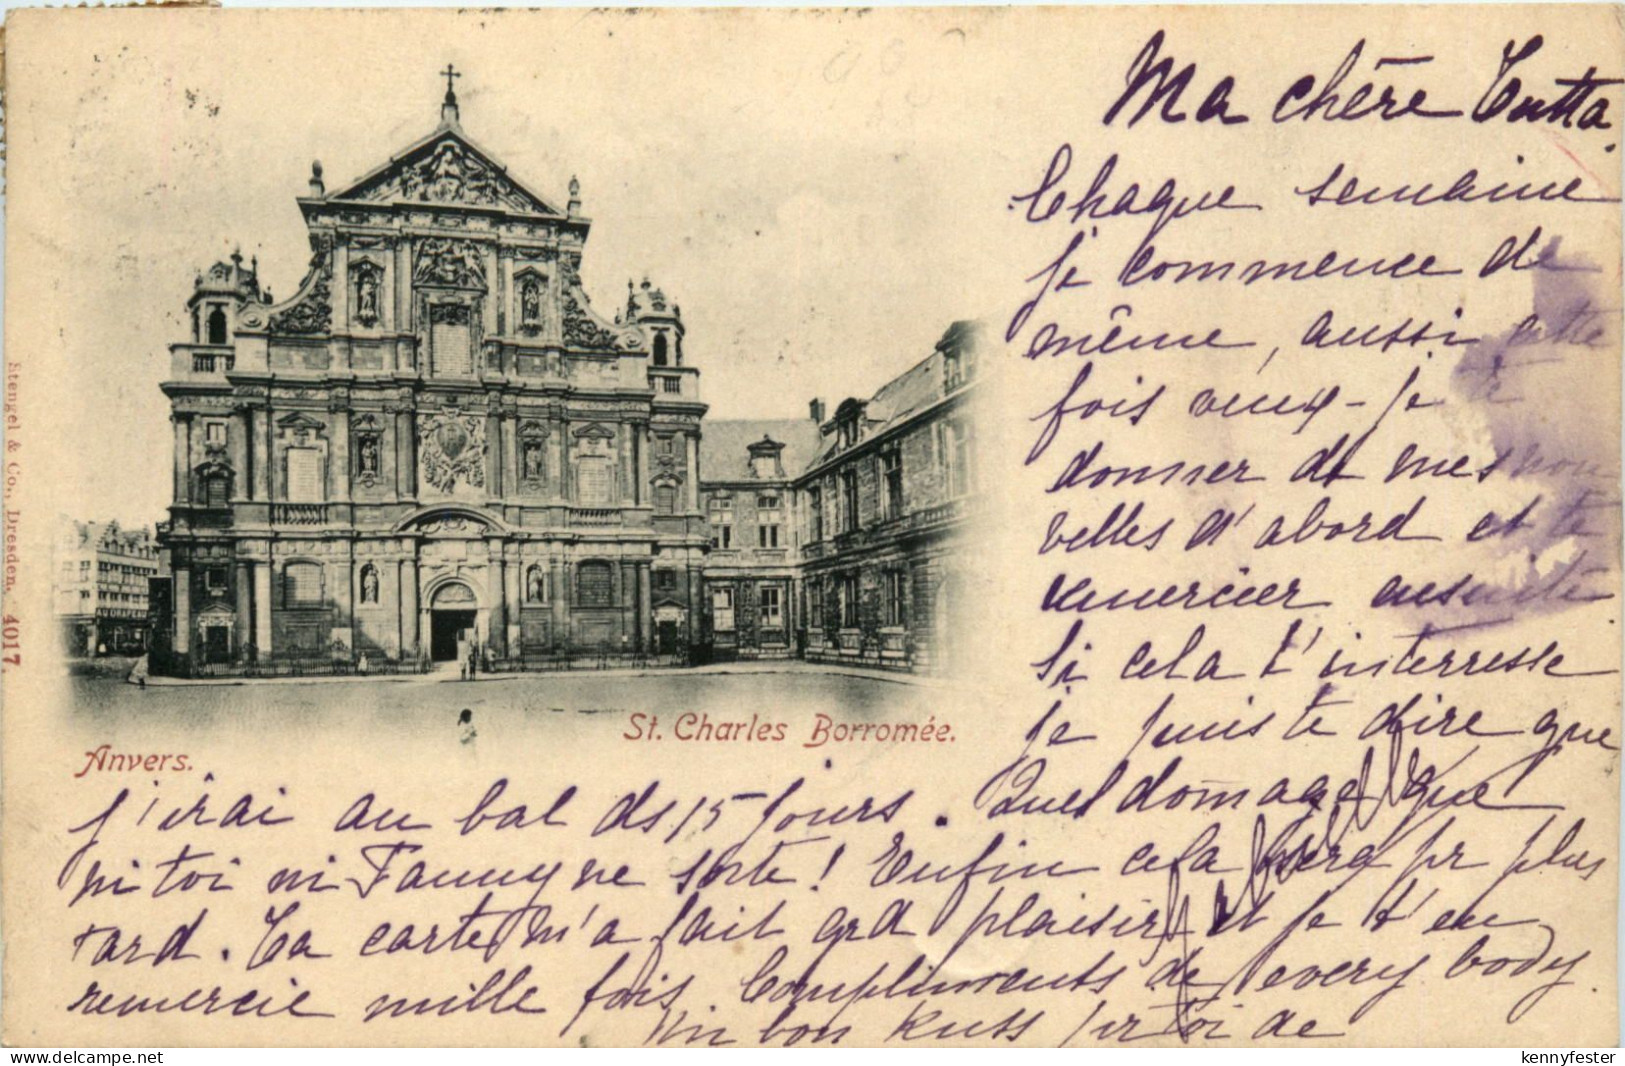 Ma chère Tutta.
Chaque semaine
je commence de
même, aussi cette
fois veux-je te
donner de mes nou
velles d'abord et te
remercier ensuite
si cela t'interresse
je puis te dire que
j'irai au bal ds 15 jours. Quel domage que
ni toi ni Fanny ne sorte! Enfin cela sera pr plus
tard. Ta carte m'a fait grd plaisir et je t'en
remercie mille fois. Compliments de every body.
Un bon Kuss pr toi de
St. Charles Borromée.
Anvers.
Stengel & Co., Dresden. 4017.
AU DRAPEAU
kennyfester